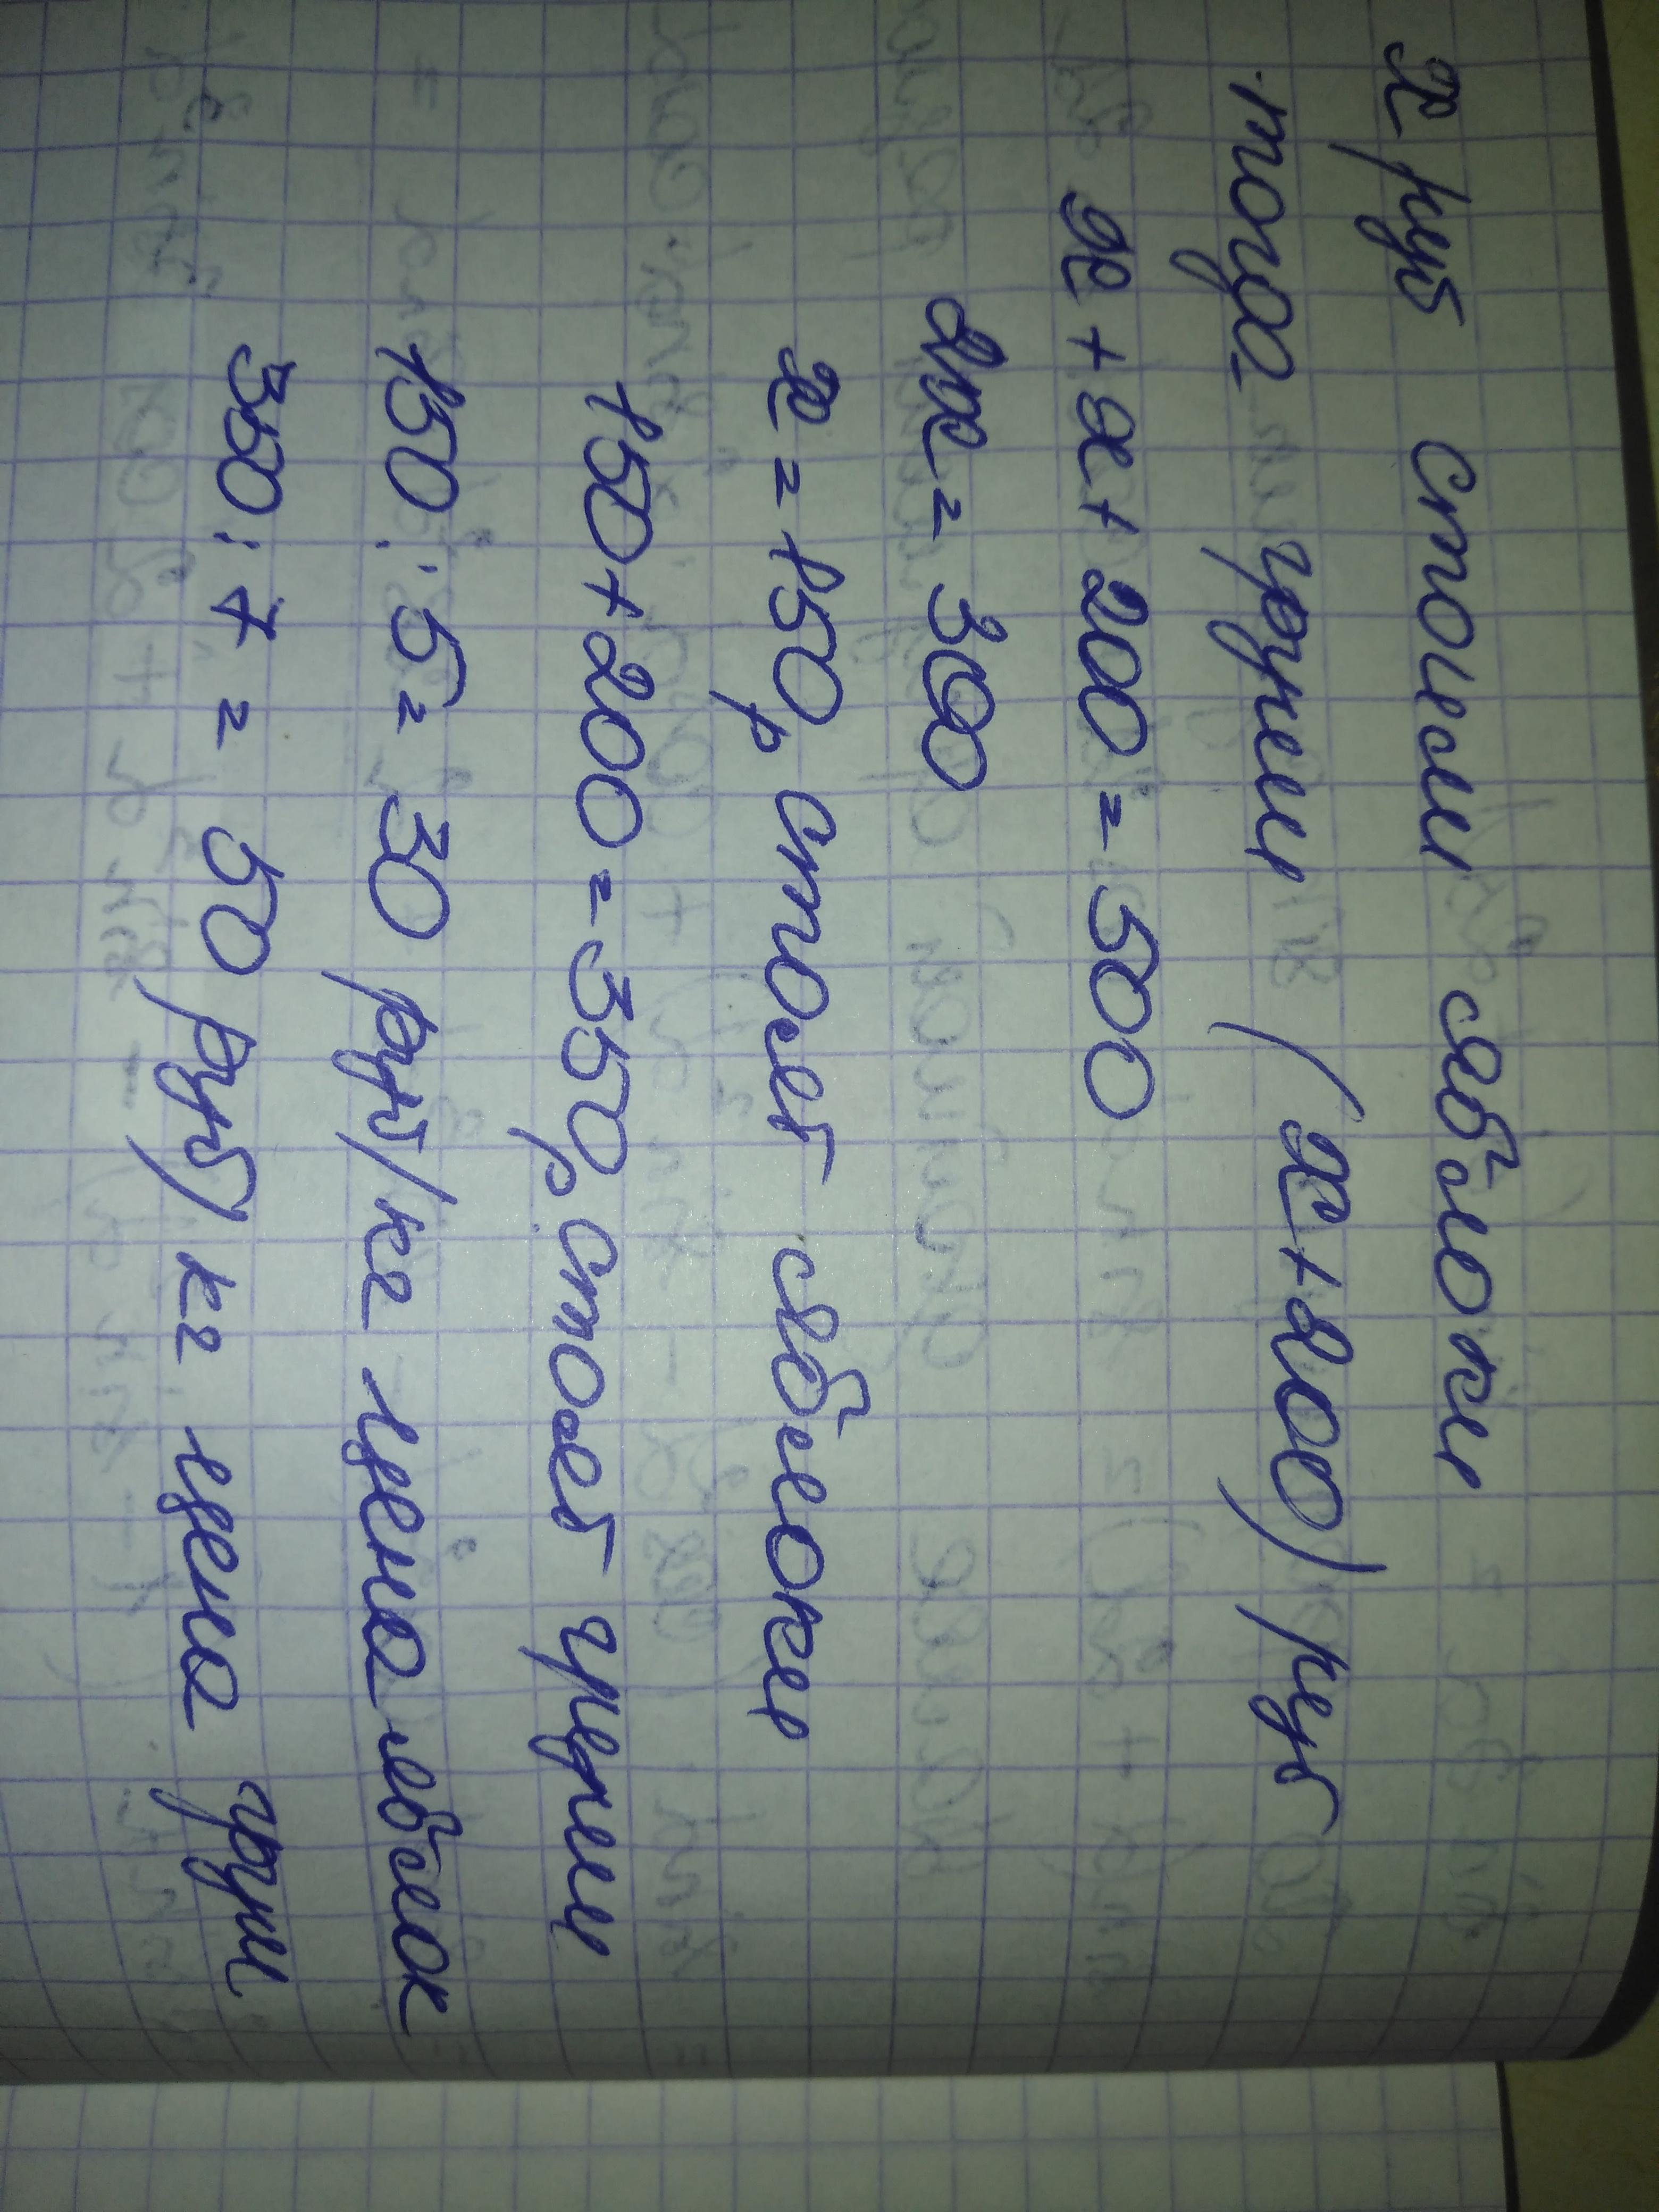 х руб стоили яблоки
тогда груши (х+200) руб
х + х + 200 = 500
2х = 300
х = 150р стоят яблоки
150 + 200 = 350р стоят груши
150 : 5 = 30 руб/кг цена яблок
350 : 7 = 50 руб/кг цена груш